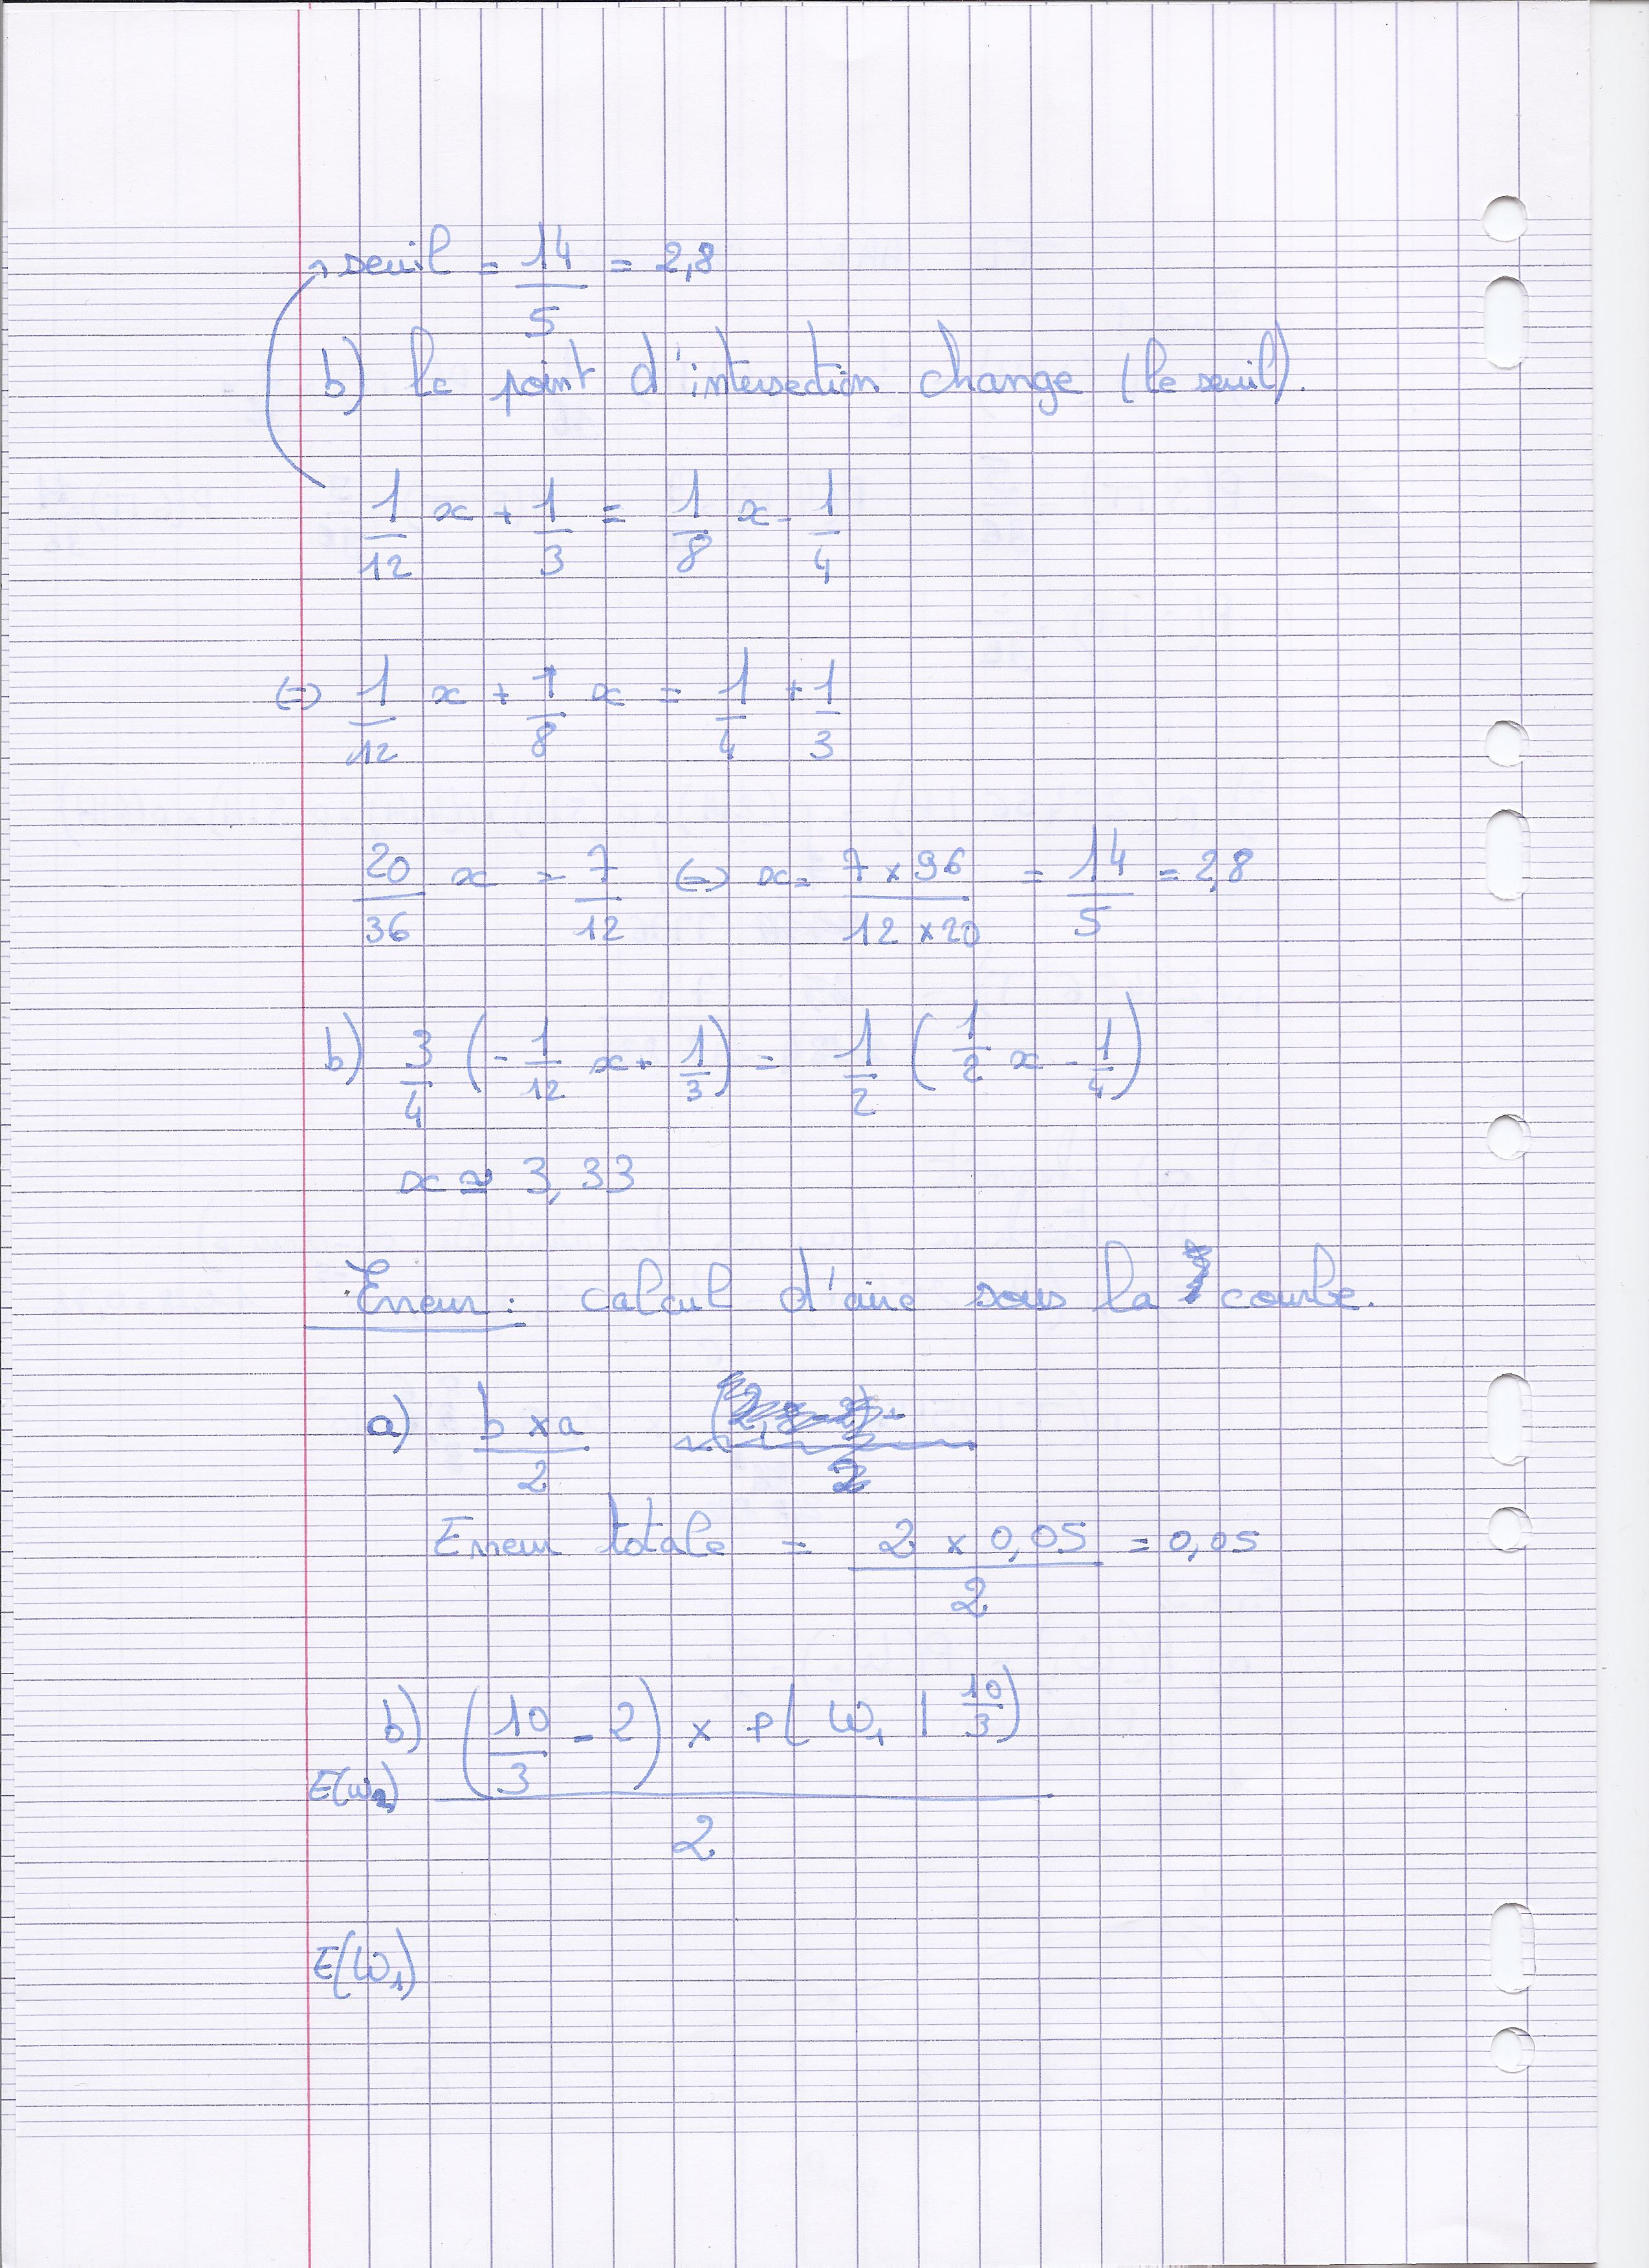 → seuil = 14/5 = 2,8
b) le point d'intersection change (le seuil).
1/12 x + 1/3 = 1/8 x - 1/4
(=) 1/12 x + 1/8 x = 1/4 + 1/3
20/36 x = 7/12 (=) x = 7 x 96 / 12 x 20 = 14/5 = 2,8
b) 3/4 (- 1/12 x + 1/3) = 1/2 (1/2 x - 1/4)
x ≃ 3,33
Erreur : calcul d'aire sous la courbe.
a) b x a / 2
Erreur totale = 2 x 0,05 / 2 = 0,05
b) E(ω2) (10/3 - 2) x P(ω1 | 10/3) / 2
E(ω1)